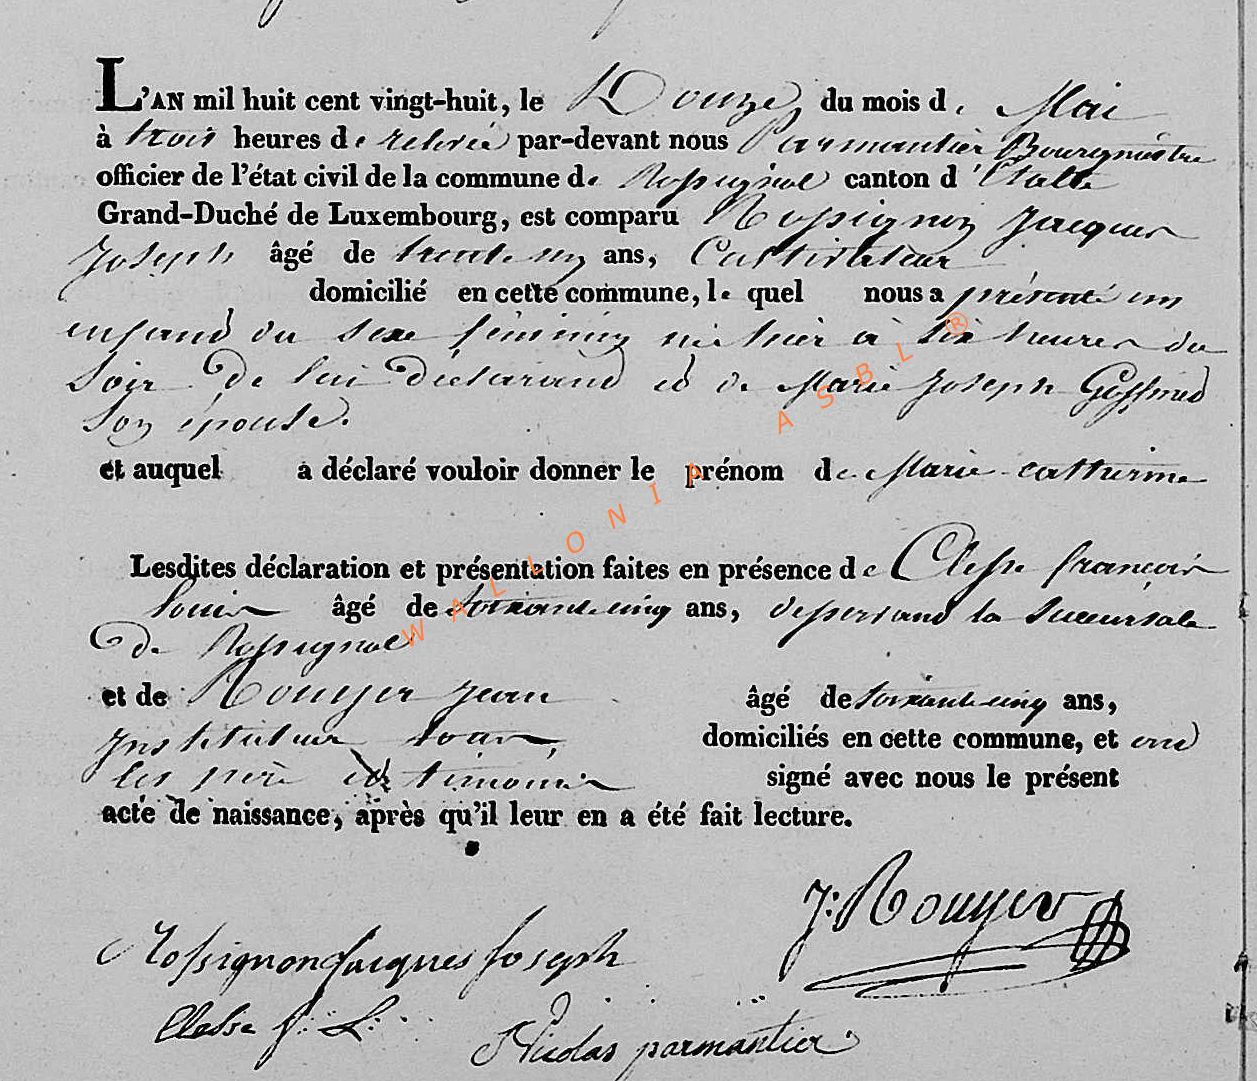 L'AN mil huit cent vingt-huit, le Douze du mois de Mai
à trois heures de relevée par-devant nous Parmantier Bourgmestre
officier de l'état civil de la commune de Rossignol canton d'Etalle
Grand-Duché de Luxembourg, est comparu Rossignon Jacques
Joseph âgé de trente un ans, Cultivateur
domicilié en cette commune, le quel nous a présenté un
enfand du sexe féminin né hier à six heures du
Soir De lui Declarand ed de Marie Joseph Goffined
Son épouse.
et auquel a déclaré vouloir donner le prénom de Marie catherine
Lesdites déclaration et présentation faites en présence de Clesse françois
Louis âgé de soixante cinq ans, desservand la succursale
De Rossignol
et de Rouyer jean âgé de soixante cinq ans,
Instituteur tous domiciliés en cette commune, et ond
les père et témoins signé avec nous le présent
acte de naissance, après qu'il leur en a été fait lecture.
J: Rouyer
Rossignon Jacques Joseph
Clesse f: L:
Nicolas parmantier
WALLONIA ASBL ®